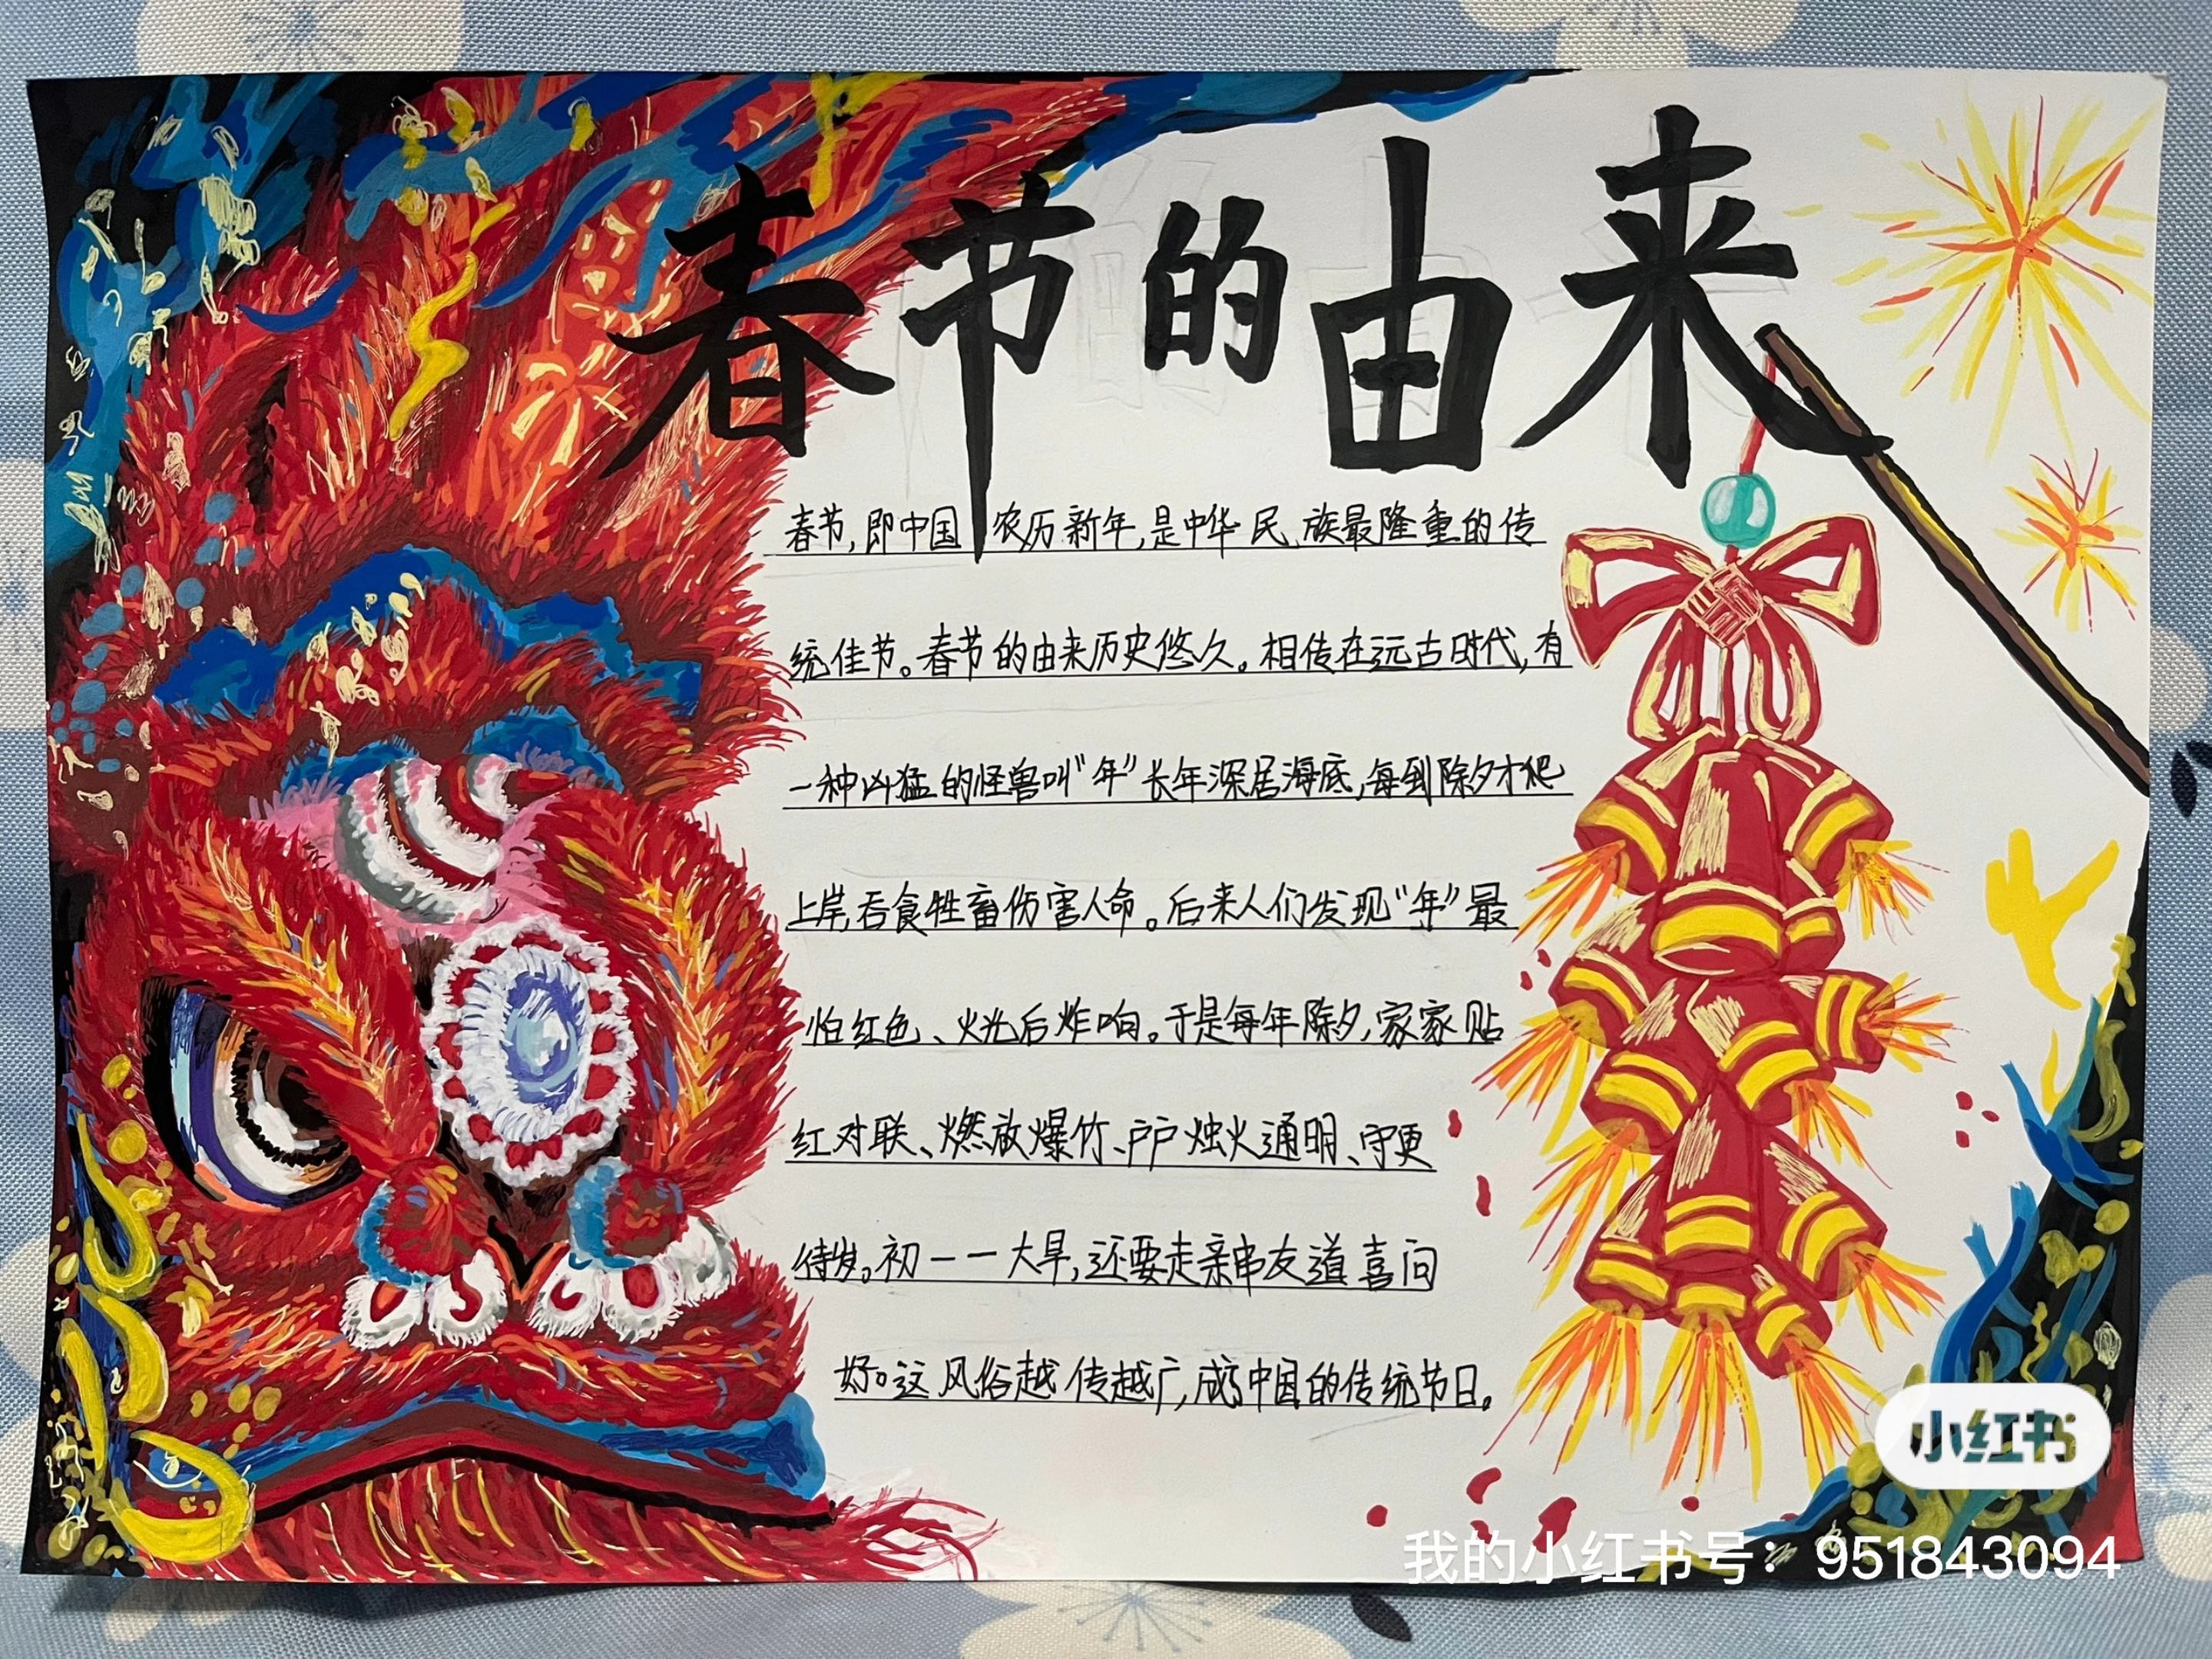 春节的由来
春节,即中国农历新年,是中华民族最隆重的传
统佳节。春节的由来历史悠久。相传在远古时代,有
一种凶猛的怪兽叫“年”长年深居海底,每到除夕才爬
上岸,吞食牲畜伤害人命。后来人们发现“年”最
怕红色、火光后炸响。于是每年除夕,家家贴
红对联、燃放爆竹、户户烛火通明、守更
待岁。初一一大早,还要走亲串友道喜问
好。这风俗越传越广,成中国的传统节日。
小红书
我的小红书号：951843094